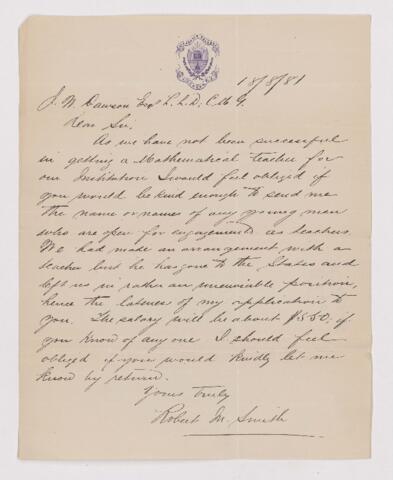 18/8/81
J. W. Dawson Esqr L.L.D; C.M.G.
Dear Sir,
As we have not been successful
in getting a Mathematical teacher for
our Institution I would feel obliged if
you would be kind enough to send me
the name or names of any young men
who are open for engagements as teachers.
We had made an arrangement with a
teacher but he has gone to the States and
left us in rather an unenviable position,
hence the lateness of my application to
you. The salary will be about $550; if
you know of any one I should feel
obliged if you would kindly let me
know by return.
Yours truly
Robert M. Smith